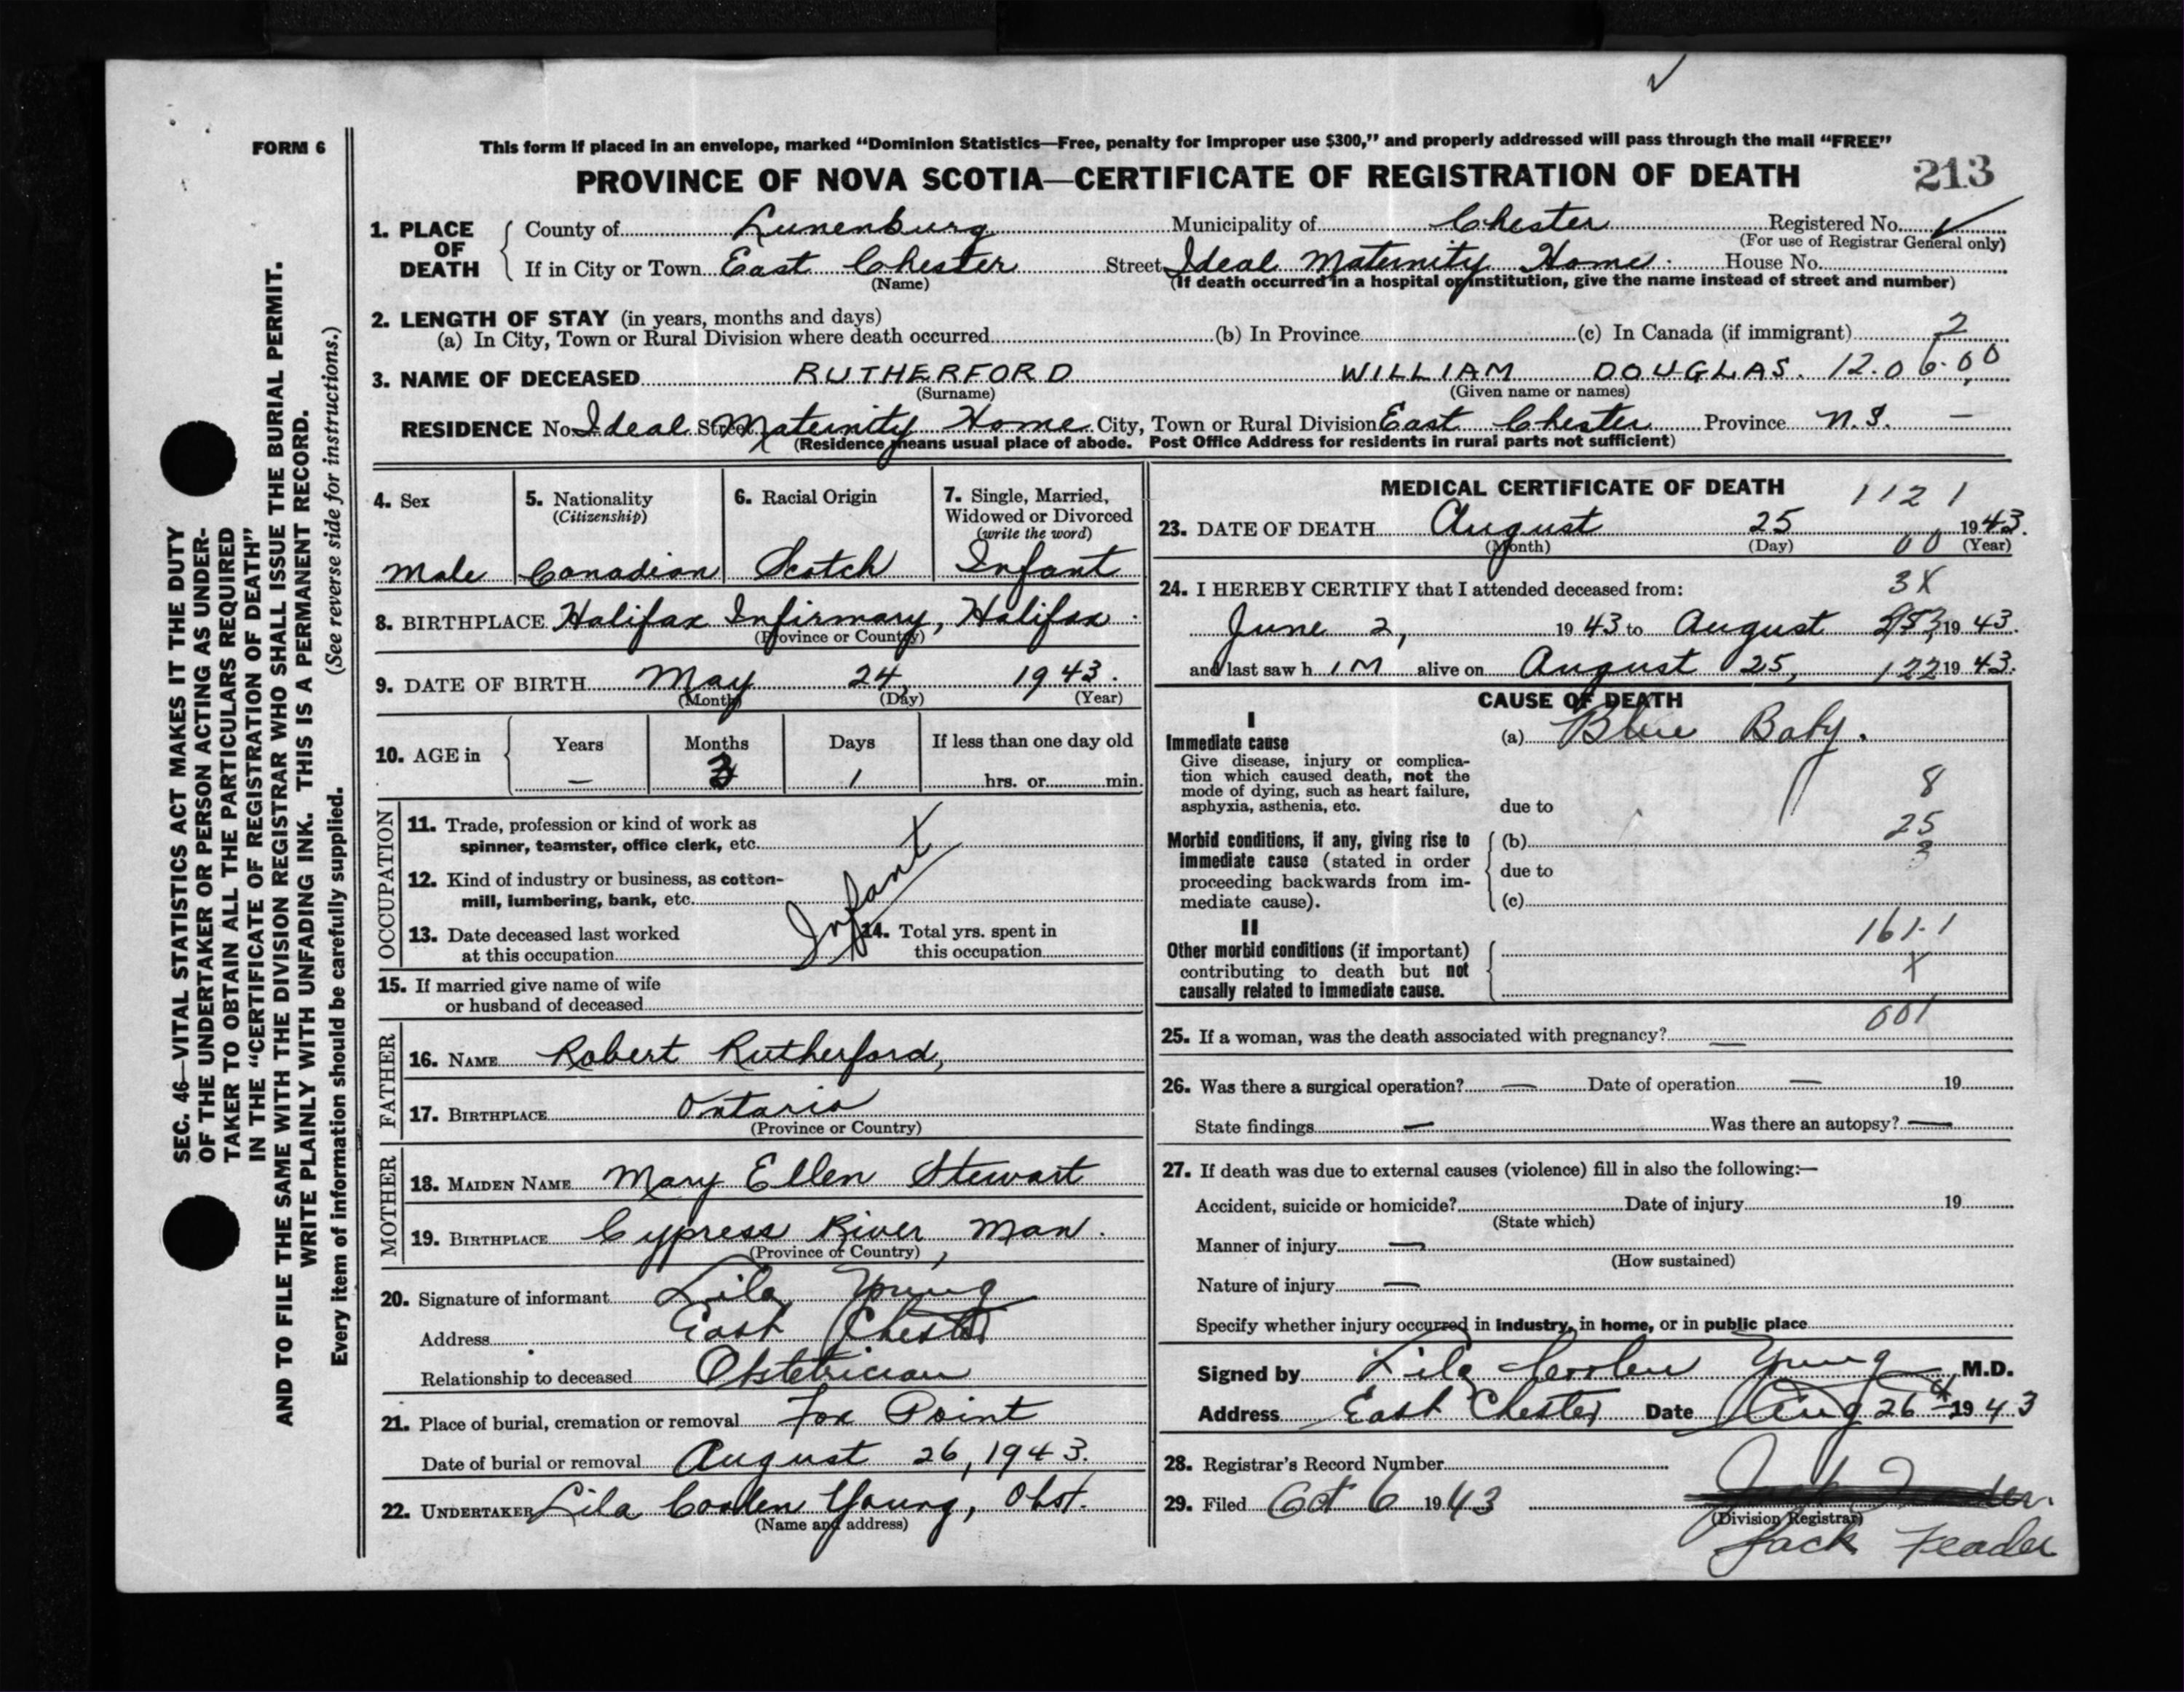 FORM 6
This form if placed in an envelope, marked “Dominion Statistics—Free, penalty for improper use $300,” and properly addressed will pass through the mail “FREE”
PROVINCE OF NOVA SCOTIA—CERTIFICATE OF REGISTRATION OF DEATH 213
SEC. 46—VITAL STATISTICS ACT MAKES IT THE DUTY
OF THE UNDERTAKER OR PERSON ACTING AS UNDER-
TAKER TO OBTAIN ALL THE PARTICULARS REQUIRED
IN THE “CERTIFICATE OF REGISTRATION OF DEATH”
AND TO FILE THE SAME WITH THE DIVISION REGISTRAR WHO SHALL ISSUE THE BURIAL PERMIT.
WRITE PLAINLY WITH UNFADING INK. THIS IS A PERMANENT RECORD.
Every item of information should be carefully supplied. (See reverse side for instructions.)
1. PLACE OF DEATH
County of Lunenburg Municipality of Chester Registered No.
(For use of Registrar General only)
If in City or Town East Chester Street Ideal Maternity Home. House No.
(Name) (If death occurred in a hospital or institution, give the name instead of street and number)
2. LENGTH OF STAY (in years, months and days)
(a) In City, Town or Rural Division where death occurred (b) In Province (c) In Canada (if immigrant) 2
3. NAME OF DECEASED RUTHERFORD WILLIAM DOUGLAS. 12.06.00
(Surname) (Given name or names)
RESIDENCE No. Ideal Street Maternity Home City, Town or Rural Division East Chester Province N.S. —
(Residence means usual place of abode. Post Office Address for residents in rural parts not sufficient)
4. Sex
Male
5. Nationality
(Citizenship)
Canadian
6. Racial Origin
Scotch
7. Single, Married,
Widowed or Divorced
(write the word)
Infant
8. BIRTHPLACE Halifax Infirmary, Halifax.
(Province or Country)
9. DATE OF BIRTH May 24, 1943.
(Month) (Day) (Year)
10. AGE in
Years Months Days If less than one day old
— 3 1 hrs. or min.
OCCUPATION
11. Trade, profession or kind of work as
spinner, teamster, office clerk, etc.
12. Kind of industry or business, as cotton-
mill, lumbering, bank, etc.
Infant
13. Date deceased last worked
at this occupation
14. Total yrs. spent in
this occupation
15. If married give name of wife
or husband of deceased
FATHER
16. NAME Robert Rutherford,
17. BIRTHPLACE Ontario
(Province or Country)
MOTHER
18. MAIDEN NAME Mary Ellen Stewart
19. BIRTHPLACE Cypress River, Man.
(Province or Country)
20. Signature of informant Lila Young
Address East Chester
Relationship to deceased Obstetrician
21. Place of burial, cremation or removal Fox Point
Date of burial or removal August 26, 1943.
22. UNDERTAKER Lila Coolen Young, Obst.
(Name and address)
MEDICAL CERTIFICATE OF DEATH 1121
23. DATE OF DEATH August 25 1943.
(Month) (Day) 00 (Year)
24. I HEREBY CERTIFY that I attended deceased from: 3X
June 2, 1943 to August 1943.
and last saw h im alive on August 25, 122 1943.
CAUSE OF DEATH
I
Immediate cause
Give disease, injury or complica-
tion which caused death, not the
mode of dying, such as heart failure,
asphyxia, asthenia, etc.
(a) Blue Baby.
8
due to
25
Morbid conditions, if any, giving rise to
immediate cause (stated in order
proceeding backwards from im-
mediate cause).
(b)
3
due to
(c)
II
Other morbid conditions (if important)
contributing to death but not
causally related to immediate cause.
161.1
X
001
25. If a woman, was the death associated with pregnancy? —
26. Was there a surgical operation? — Date of operation — 19
State findings — Was there an autopsy? —
27. If death was due to external causes (violence) fill in also the following:—
Accident, suicide or homicide? Date of injury 19
(State which)
Manner of injury —
(How sustained)
Nature of injury —
Specify whether injury occurred in industry, in home, or in public place
Signed by Lila Coolen Young M.D.
Address East Chester Date Aug 26th 1943
28. Registrar's Record Number
29. Filed Oct 6 1943
(Division Registrar)
Jack Feader